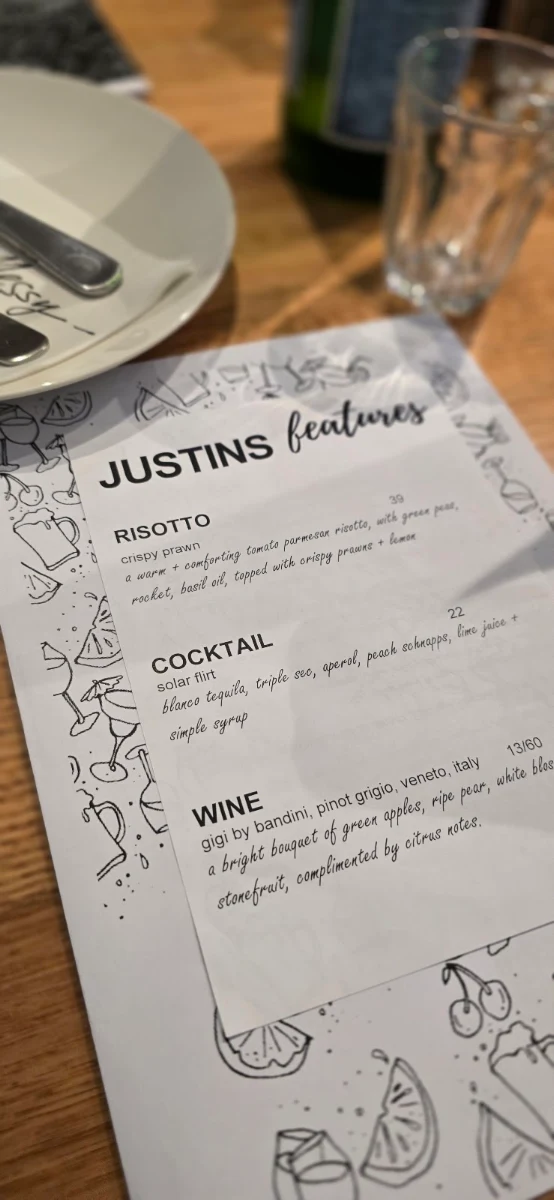 JUSTINS features
RISOTTO
39
crispy prawn
a warm + comforting tomato parmesan risotto, with green peas,
rocket, basil oil, topped with crispy prawns + lemon
COCKTAIL
22
solar flirt
blanco tequila, triple sec, aperol, peach schnapps, lime juice +
simple syrup
WINE
13/60
gigi by bandini, pinot grigio, veneto, italy
a bright bouquet of green apples, ripe pear, white
stonefruit, complimented by citrus notes.